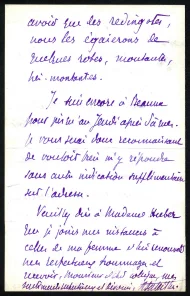 avoir que des redingotes,
nous les égaierons de
quelques robes, montantes,
mi-montantes.
Je suis encore à Beaune
pour jusqu'au Jeudi après d'aîner.
Je vous serai donc reconnaissant
de vouloir bien m'y répondre
sans autre indication supplémentaire
sur l'adresse.
Veuillez dire à Madame
que je joins mes instances à
celles de ma femme et lui
mes respectueux hommages et
recevoir, Monsieur et cher collègue, mes